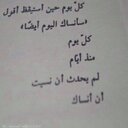 كلّ يوم حين أستيقظ أقول
«سأنساك اليوم أيضًا»
كلّ يوم
منذ أيّام
لم يحدث أن نسيت
أن أنساك